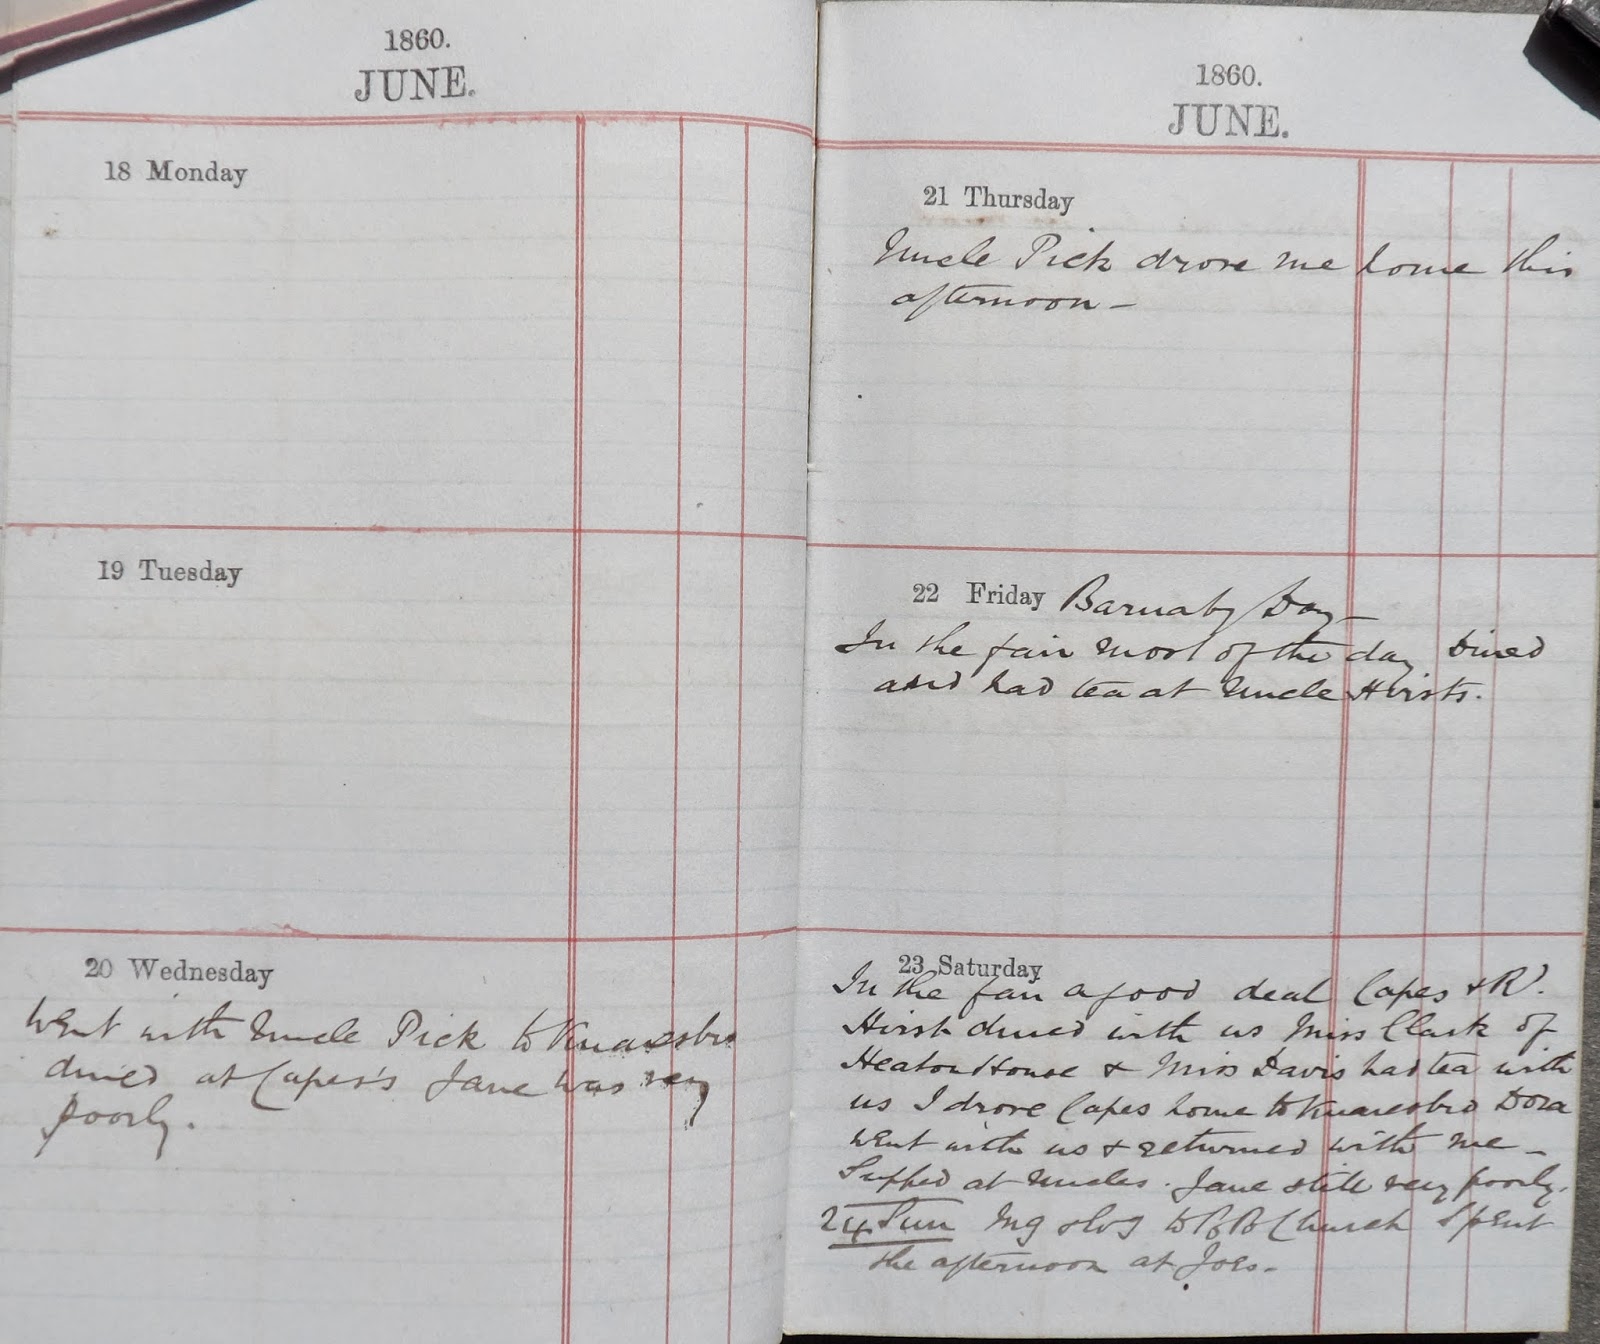 1860.
JUNE.
18 Monday
19 Tuesday
20 Wednesday
Went with Uncle Pick to Knaresbro
dined at Capes's Jane was very
poorly.
1860.
JUNE.
21 Thursday
Uncle Pick drove me home this
afternoon –
22 Friday Barnaby Day –
In the fair most of the day Dined
and had tea at Uncle Hirsts.
23 Saturday
In the fair a good deal Capes & Rd.
Hirst dined with us Miss Clark of
Heaton House & Miss Davis had tea with
us I drove Capes home to Knaresbro Dora
went with us & returned with me –
Supped at Uncles. Jane still very poorly.
24 Sun Mg & to BB Church Spent
the afternoon at Joes.